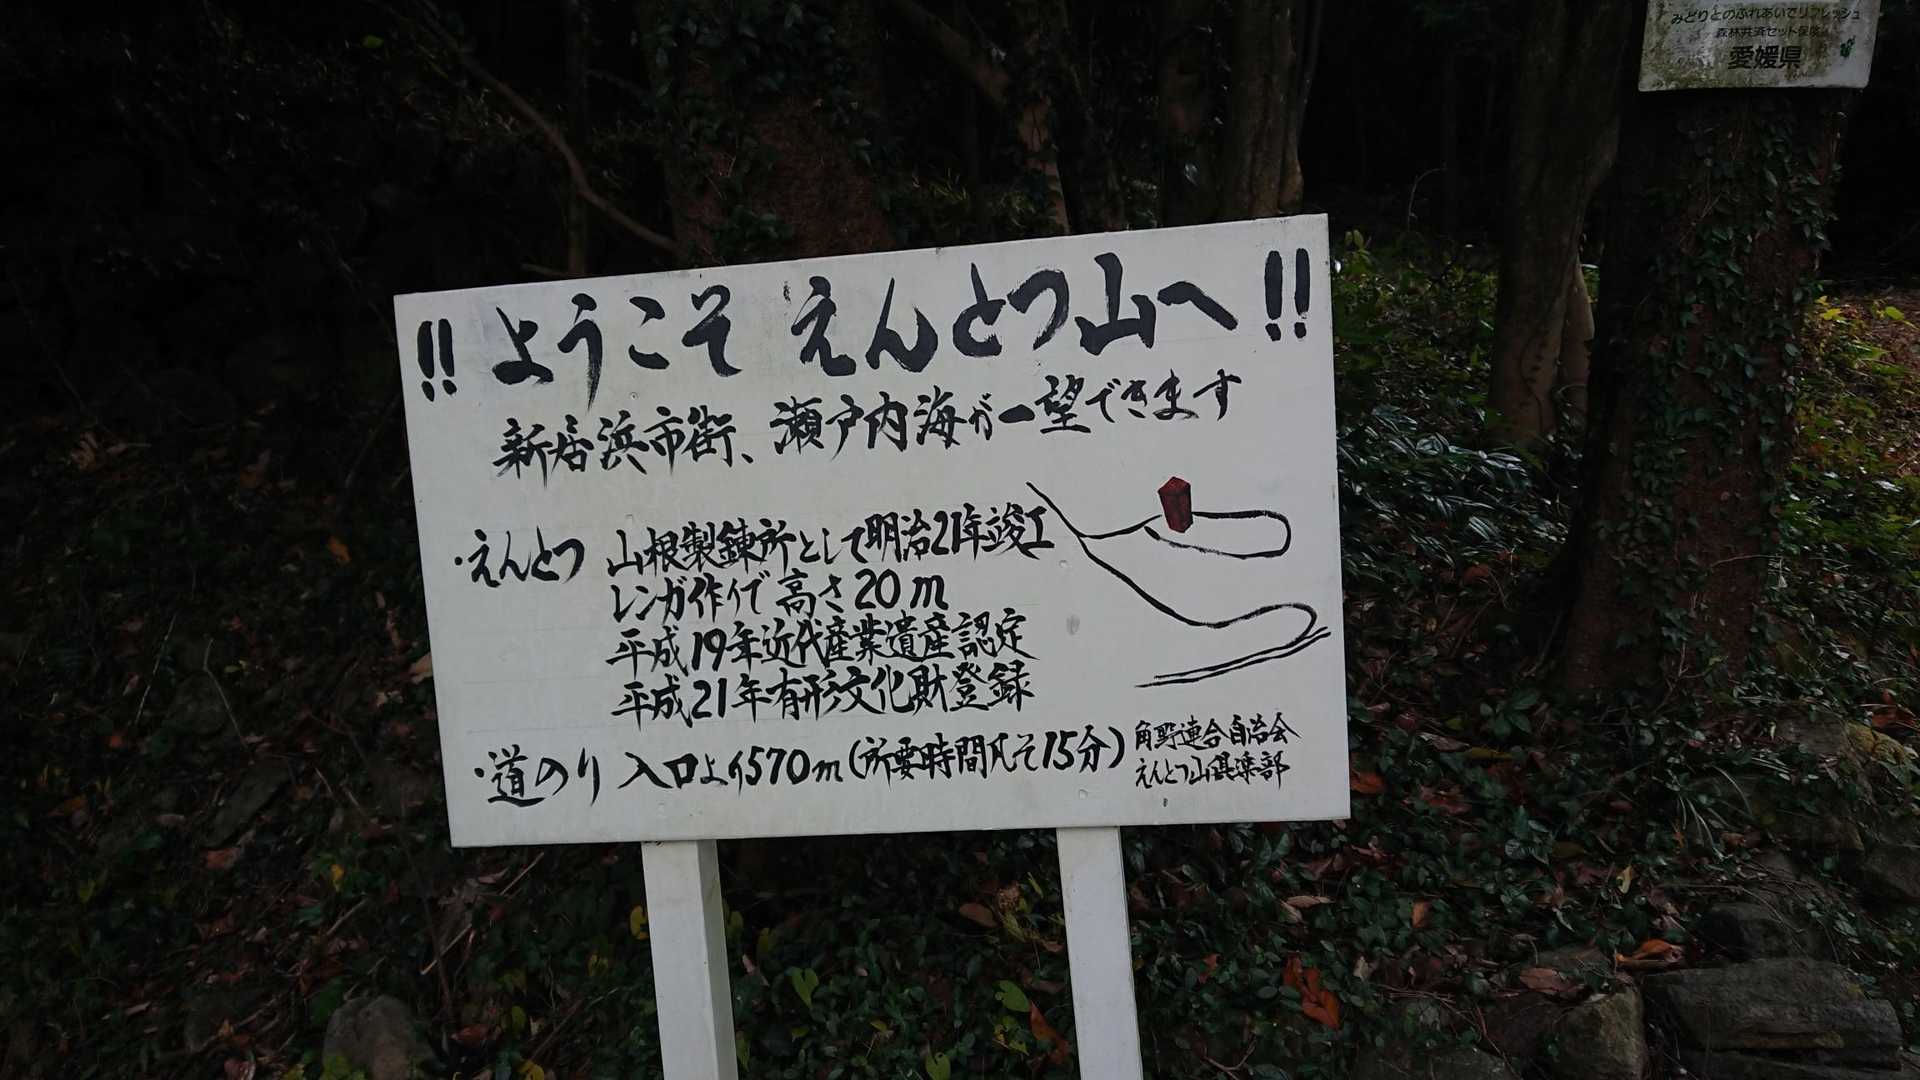 みどりとのふれあいでリフレッシュ
森林共済セット保険
愛媛県
!! ようこそ えんとつ山へ !!
新居浜市街、瀬戸内海が一望できます
・えんとつ 山根製錬所として明治21年竣工
レンガ作りで高さ20m
平成19年近代産業遺産認定
平成21年有形文化財登録
・道のり 入口より570m(所要時間凡そ15分)
角野連合自治会
えんとつ山倶楽部